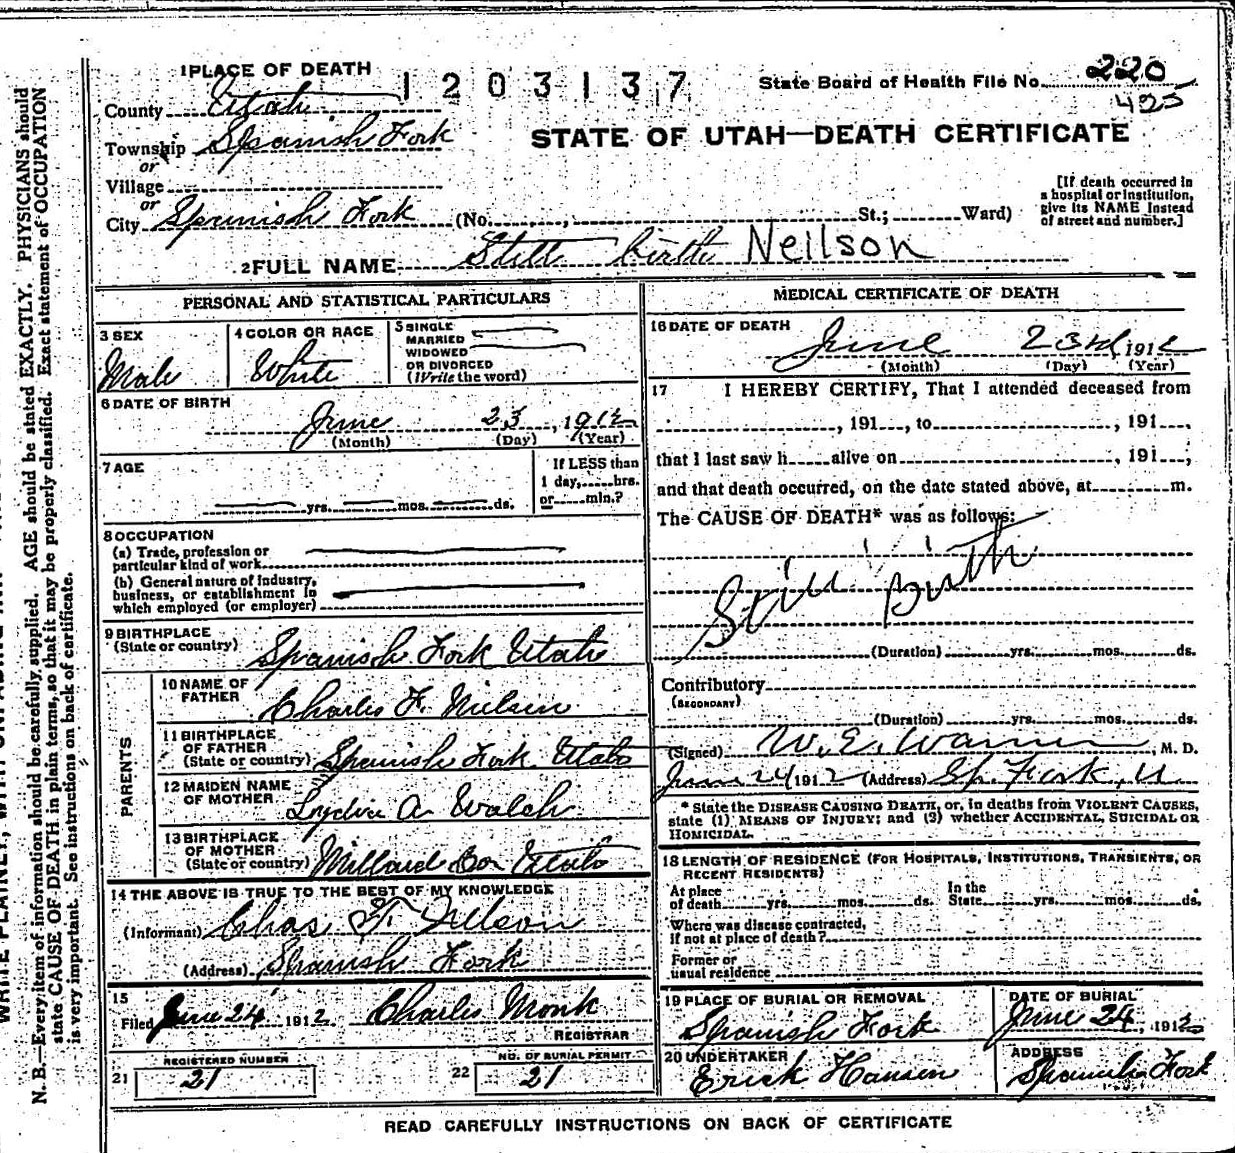 1 PLACE OF DEATH
1203137
State Board of Health File No. 220
425
County Utah
Township Spanish Fork
or
Village
or
City Spanish Fork (No. , St.; Ward)
STATE OF UTAH—DEATH CERTIFICATE
[If death occurred in
a hospital or institution,
give its NAME instead
of street and number.]
2 FULL NAME Still birth Neilson
PERSONAL AND STATISTICAL PARTICULARS
3 SEX
Male
4 COLOR OR RACE
White
5 SINGLE
MARRIED
WIDOWED
OR DIVORCED
(Write the word)
6 DATE OF BIRTH
June 23, 1912
(Month) (Day) (Year)
7 AGE
yrs. mos. ds.
If LESS than
1 day, hrs.
or min.?
8 OCCUPATION
(a) Trade, profession or
particular kind of work
(b) General nature of Industry,
business, or establishment in
which employed (or employer)
9 BIRTHPLACE
(State or country) Spanish Fork Utah
PARENTS
10 NAME OF
FATHER Charles F. Nielsen
11 BIRTHPLACE
OF FATHER
(State or country) Spanish Fork Utah
12 MAIDEN NAME
OF MOTHER Lydia A Walch
13 BIRTHPLACE
OF MOTHER
(State or country) Millard Co Utah
14 THE ABOVE IS TRUE TO THE BEST OF MY KNOWLEDGE
(Informant) Chas F. Nelson
(Address) Spanish Fork
15
Filed June 24 1912 Charles Monk
REGISTRAR
REGISTERED NUMBER
21 21
NO. OF BURIAL PERMIT
22 21
MEDICAL CERTIFICATE OF DEATH
16 DATE OF DEATH
June 23rd, 1912
(Month) (Day) (Year)
17 I HEREBY CERTIFY, That I attended deceased from
, 191 , to , 191 ,
that I last saw h alive on , 191 ;
and that death occurred, on the date stated above, at m.
The CAUSE OF DEATH* was as follows:
Still Birth
(Duration) yrs. mos. ds.
Contributory
(SECONDARY)
(Duration) yrs. mos. ds.
(Signed) W. E. Warner, M. D.
June 24 1912 (Address) Sp. Fork, U.
* State the DISEASE CAUSING DEATH, or, in deaths from VIOLENT CAUSES,
state (1) MEANS OF INJURY; and (2) whether ACCIDENTAL, SUICIDAL OR
HOMICIDAL.
18 LENGTH OF RESIDENCE (FOR HOSPITALS, INSTITUTIONS, TRANSIENTS, OR
RECENT RESIDENTS)
At place
of death yrs. mos. ds.
In the
State yrs. mos. ds.
Where was disease contracted,
if not at place of death?
Former or
usual residence
19 PLACE OF BURIAL OR REMOVAL
Spanish Fork
DATE OF BURIAL
June 24, 1912
20 UNDERTAKER
Erick Hansen
ADDRESS
Spanish Fork
READ CAREFULLY INSTRUCTIONS ON BACK OF CERTIFICATE
N. B.—Every item of information should be carefully supplied. AGE should be stated EXACTLY. PHYSICIANS should
state CAUSE OF DEATH in plain terms, so that it may be properly classified. Exact statement of OCCUPATION
is very important. See instructions on back of certificate.